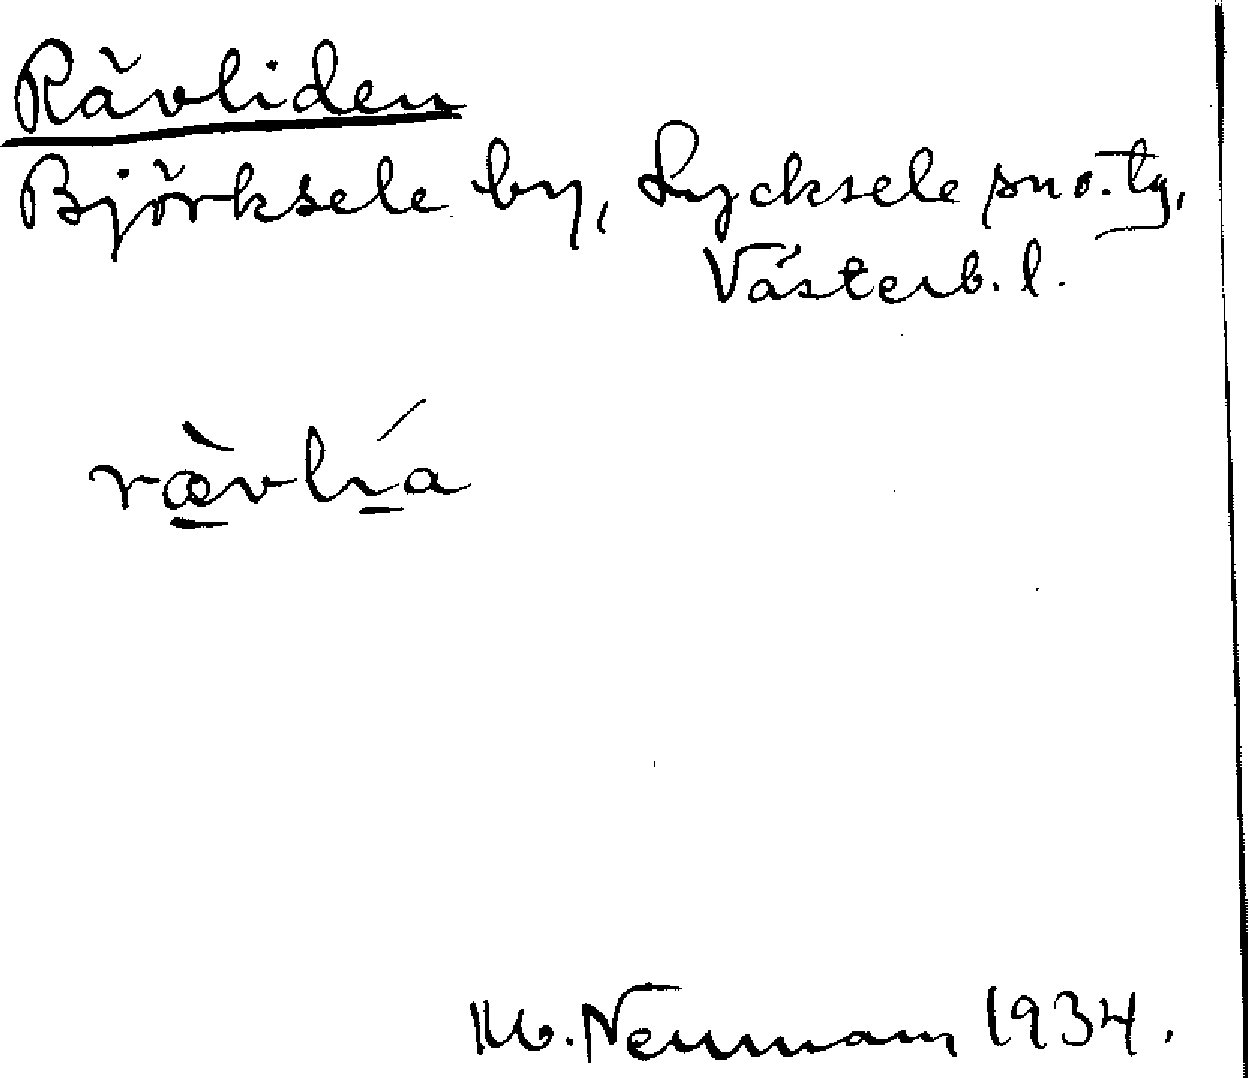 Rävliden
Björksele by, Lycksele sn o. tg,
Västerb. l.
rævlia
M. Neumann 1934.